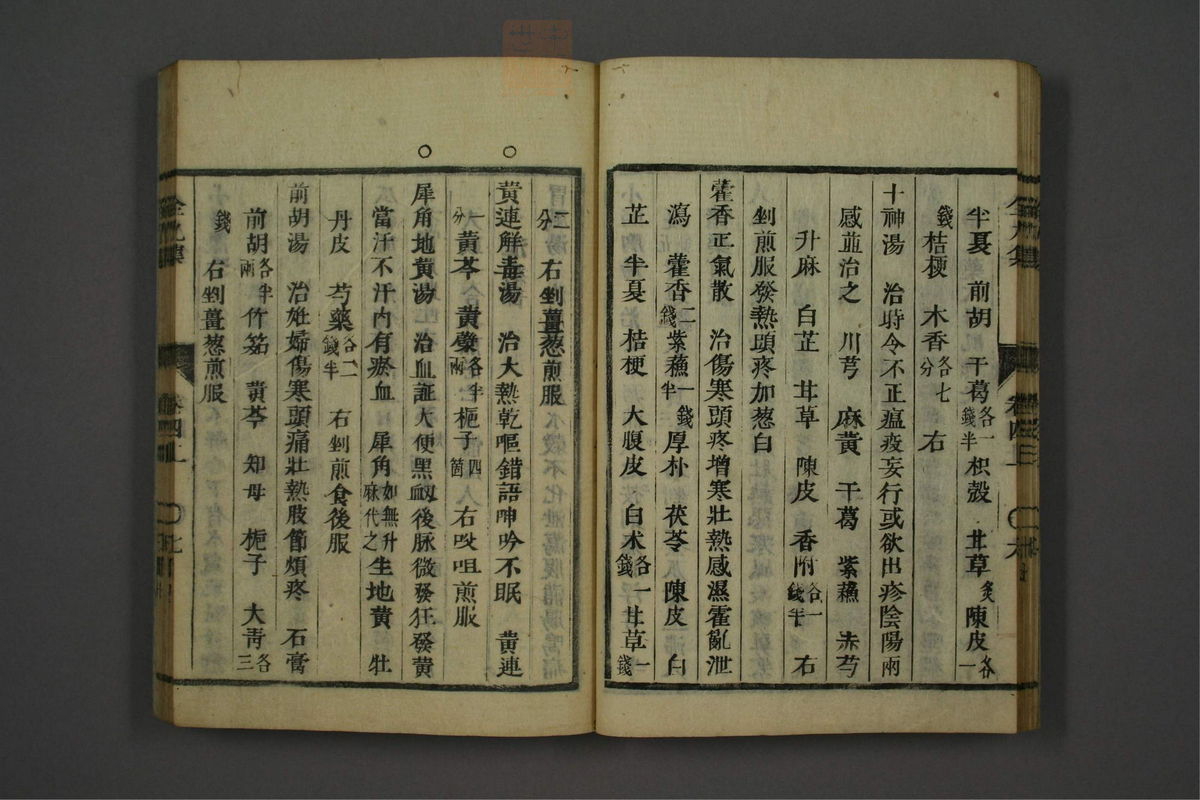 半夏 前胡 干葛各一錢半 枳殼 甘草炙 陳皮各一
錢 桔梗 木香各七分 右
十神湯 治時令不正瘟疫妄行或欲出疹陰陽兩
感並治之 川芎 麻黃 干葛 紫蘓 赤芍
升麻 白芷 甘草 陳皮 香附各一錢半 右
剉煎服發熱頭疼加葱白
藿香正氣散 治傷寒頭疼增寒壯熱感濕霍亂泄
瀉 藿香二錢 紫蘓一錢半 厚朴 茯苓 陳皮 白
芷 半夏 桔梗 大腹皮 白朮各一錢 甘草一錢
二分 右剉薑葱煎服
黃連解毒湯 治大熱乾嘔錯語呻吟不眠 黃連
一分 黃芩 黃蘗各半兩 梔子四箇 右㕮咀煎服
犀角地黃湯 治血証大便黑衂後脉微發狂發黃
當汗不汗内有瘀血 犀角如無升麻代之 生地黃 牡
丹皮 芍藥各二錢半 右剉煎食後服
前胡湯 治妊婦傷寒頭痛壯熱肢節煩疼 石膏
前胡各半兩 竹筎 黃芩 知母 梔子 大靑各三
錢 右剉薑葱煎服
全九集
卷四上